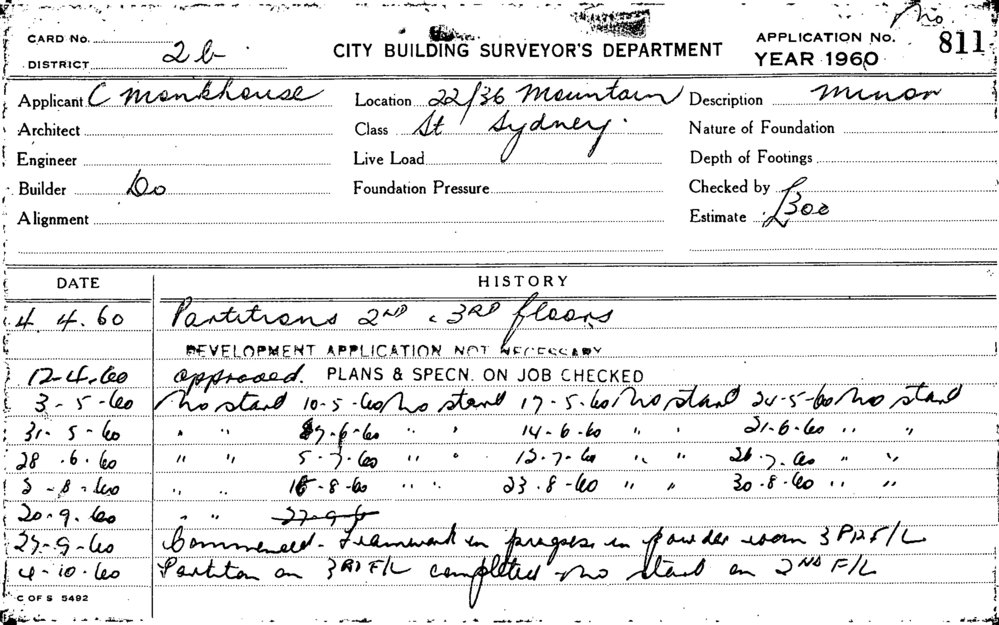 No.
CARD No. CITY BUILDING SURVEYOR'S DEPARTMENT APPLICATION No. 811
DISTRICT 2b YEAR 1960
Applicant C Monkhouse Location 22/36 Mountain Description Minor
Architect Class St Sydney. Nature of Foundation
Engineer Live Load Depth of Footings
Builder Do Foundation Pressure Checked by
Alignment Estimate £300
DATE HISTORY
4. 4. 60 Partitions 2ND & 3RD floors
DEVELOPMENT APPLICATION NOT NECESSARY
12-4-60 approved. PLANS & SPECN. ON JOB CHECKED
3-5-60 No start 10-5-60 No start 17-5-60 No start 24-5-60 No start
31-5-60 " " 7-6-60 " " 14-6-60 " " 21-6-60 " "
28.6.60 " " 5-7-60 " " 12-7-60 " " 26.7.60 " "
2-8-60 " " 16-8-60 " " 23-8-60 " " 30-8-60 " "
20-9-60 " " 27-9-60
27-9-60 Commenced - Framework in progress in powder room 3RD F/L
4-10-60 Partition on 3RD F/L completed - No start on 2ND F/L
C OF S 5492